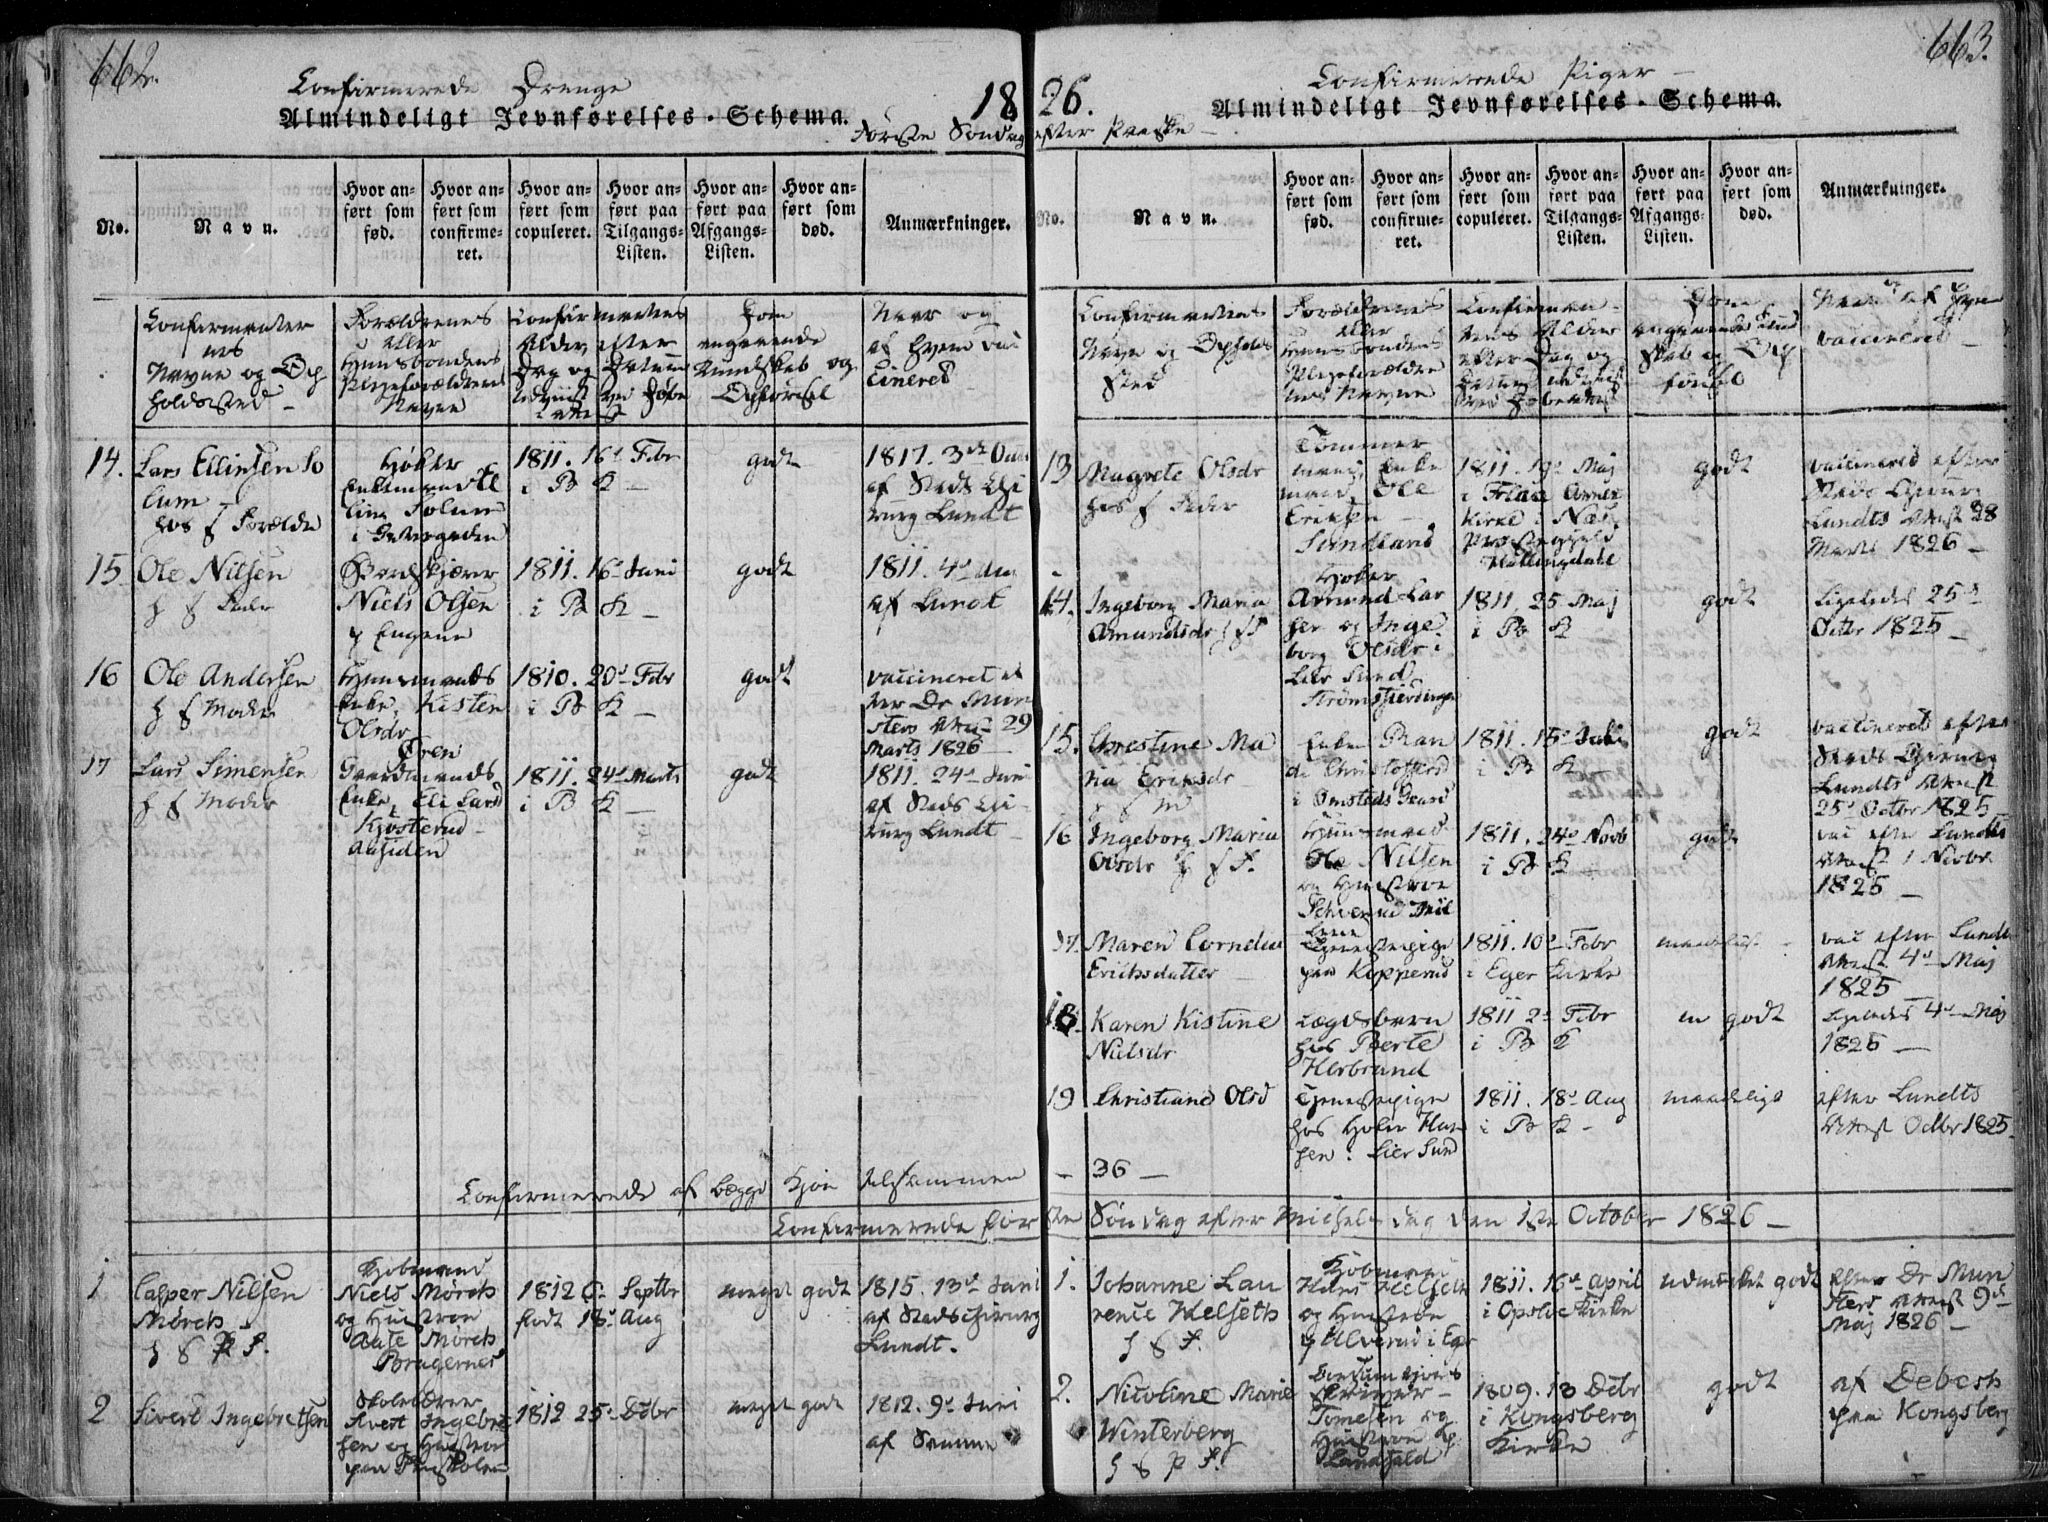 662.
Confirmerede Drenge
Almindeligt Jevnførelses-Schema.
18
Første Søndag
No.
Navn.
Hvor anført som fød.
Hvor anført som confirmeret.
Hvor anført som copuleret.
Hvor anført paa Tilgangs-Listen.
Hvor anført paa Afgangs-Listen.
Hvor anført som død.
Anmærkninger.
Confirmanter
nes
Navne og Op
holdssted –
Forældrenes
eller
Huusbondens
Plejeforældrenes
Navne
Confirmantens
Alder, efter
Dag og Datum
udviist ved Døbe
Som
angaaende
Kundskab og
Opførsel
Naar og
af hvem vac
cineret
14.
Lars Ellinsen So
lum –
hos f Forældre
Høker
Ellins Solum
1811. 16d Febr
i B K –
godt
1817. 3de
af Stads Chi
rurg Lundt
15
Ole Nilsen
h f Fader
Niels Olsen
p Engene
1811. 16d Juni
i B K –
godt
1811. 4d Aug
af Lundt
16
Ole Andersen
h f Moder
Huusmands
Enke, Kisten
Olsdr
1810. 20d Febr
i B K –
godt
vaccineret ef
ter Dr Mun
sters Attest 29
Marts 1826
17
Lars Simensen
h f Moder
Gaardmands
Enke, Eli Larsd
Kjösterud
Aasiden
1811. 24d Marts
i B K –
godt
1811. 24d Juni
af Stads Chi-
rurg Lundt –
Confirmerede af begge Kjön tilsammen
Confirmerede før
1
Casper Nilsen
Mörch –
h f P F.
Kjöbmand
Niels Mörch
og Hustroe
Aase Mörch
Bragernes
1812 6. Septbr
født 18d Aug
meget godt
1815. 13d Juni
af Stads Chirurg
Lundt.
2
Sivert Ingebretsen
Skolelærer
Sivert Ingebre
tsen og Hustroe
paa Friskolen
1812 25d Debr
meget godt
1812. 9d Juni
af Samme
663.
Confirmerede Piger –
26.
Almindeligt Jevnførelses-Schema.
efter Paaske –
No.
Navn.
Hvor anført som fød.
Hvor anført som confirmeret.
Hvor anført som copuleret.
Hvor anført paa Tilgangs-Listen.
Hvor anført paa Afgangs-Listen.
Hvor anført som død.
Anmærkninger.
Confirmantens
Navne og Opholds
sted
Forældrenes
eller
Huusbondens
Plejeforældre
nes Navne
Confirman-
tens Alder
efter Dag og
Datum udviist
ved Døbeattest
Som
angaaende Kund
skab og Op
førsel
Naar og af hvem
vaccineret –
13
Magrete Olsdr
hos f Fader
Tömmer
mand, Enke
mand, Ole
Eriksen –
Sundland
1811. 19d Maj
i Flaae Annex
Kirke i Næs
Præstegjeld
Hallingdahl
godt
vaccineret efter
Stads Chirurg
Lundts Attest 28
Marts 1826 –
14.
Ingeborg Maria
Amundsdr h f F
Høker
Amund Lar
sen og Inge
borg Olsdr i
Lier Sund
1811. 25 Maj
i B K
godt
Ligeledes 25d
Octbr 1825 –
15.
Chrestine Ma
ria Eriksdr
h f M
Enke Ran
di Christophersd
i Omsteds Gaard
1811. 15d Juli
i B K
godt
vaccineret efter
Stads Chirurg
Lundts Attest
25d Octbr 1825
16
Ingeborg Maria
Olsdr h f F.
Huusmand
Ole Nilsen
og Hustroe
1811. 24d Novb
i B K
godt
vac efter Lundts
Attest 1 Novbr
1825 –
17.
Maren Cornelia
Erichsdatter –
Tjenestepige
paa Kopperud
1811. 10d Febr
i Eger Kirke
maadelig –
vac efter Lundts
Attest 4d Maj
1825 –
18.
Karen Kistine
Nielsdr
Lægdsbarn
hos Berte
Herbrand
1811 2d Febr
i B K
m godt
Ligeledes 4d Maj
1826 –
19
Christiane Olsd
Tjenestepige
hos Høker Han
sen i Lier Sund
1811. 18d Aug
i B K –
maadeligt
efter Lundts
Attest Octbr 1825
– 36 –
ste Söndag efter Michels dag den 1ste October 1826 –
1.
Johanne Lau
rence Helseth
h f F.
Kjöbmand
Helseth
og Hustroe
p Ulverud i Eger
1811. 16d April
i Opsloe Kirke
udmærket godt
efter Dr Mun
sters Attest 9d
Maj 1826 –
2.
Nicoline Marie
Winterberg
h f P F.
Tomesen og
Hustroe p
Landfald
1809. 13 Debr
i Kongsberg
Kirke
godt
af Debesh
paa Kongsberg